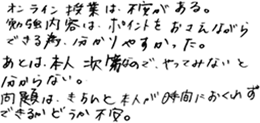 オンライン授業は、不安がある。
勉強内容は、ポイントをおさえながら
できる為、分かりやすかった。
あとは、本人次第なので、やってみないと
分からない。
問題は、きちんと本人が時間におくれず
できるかどうか不安。